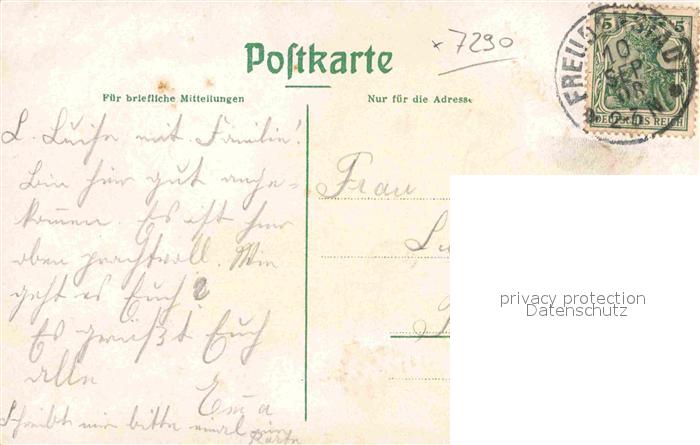 Postkarte
× 7290
Für briefliche Mitteilungen
Nur für die Adresse
5 5
DEUTSCHES REICH
FREUDENSTADT
10
SEP
08
L. Luise mit Familie!
Bin hier gut ange-
kommen. Es ist hier
oben prachtvoll. Wie
geht es Euch?
Es grüßt Euch
alle
Emma
Schreibt mir bitte einmal eine
Karte
Frau
privacy protection
Datenschutz